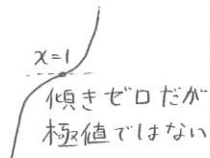 x=1
傾きゼロだが
極値ではない